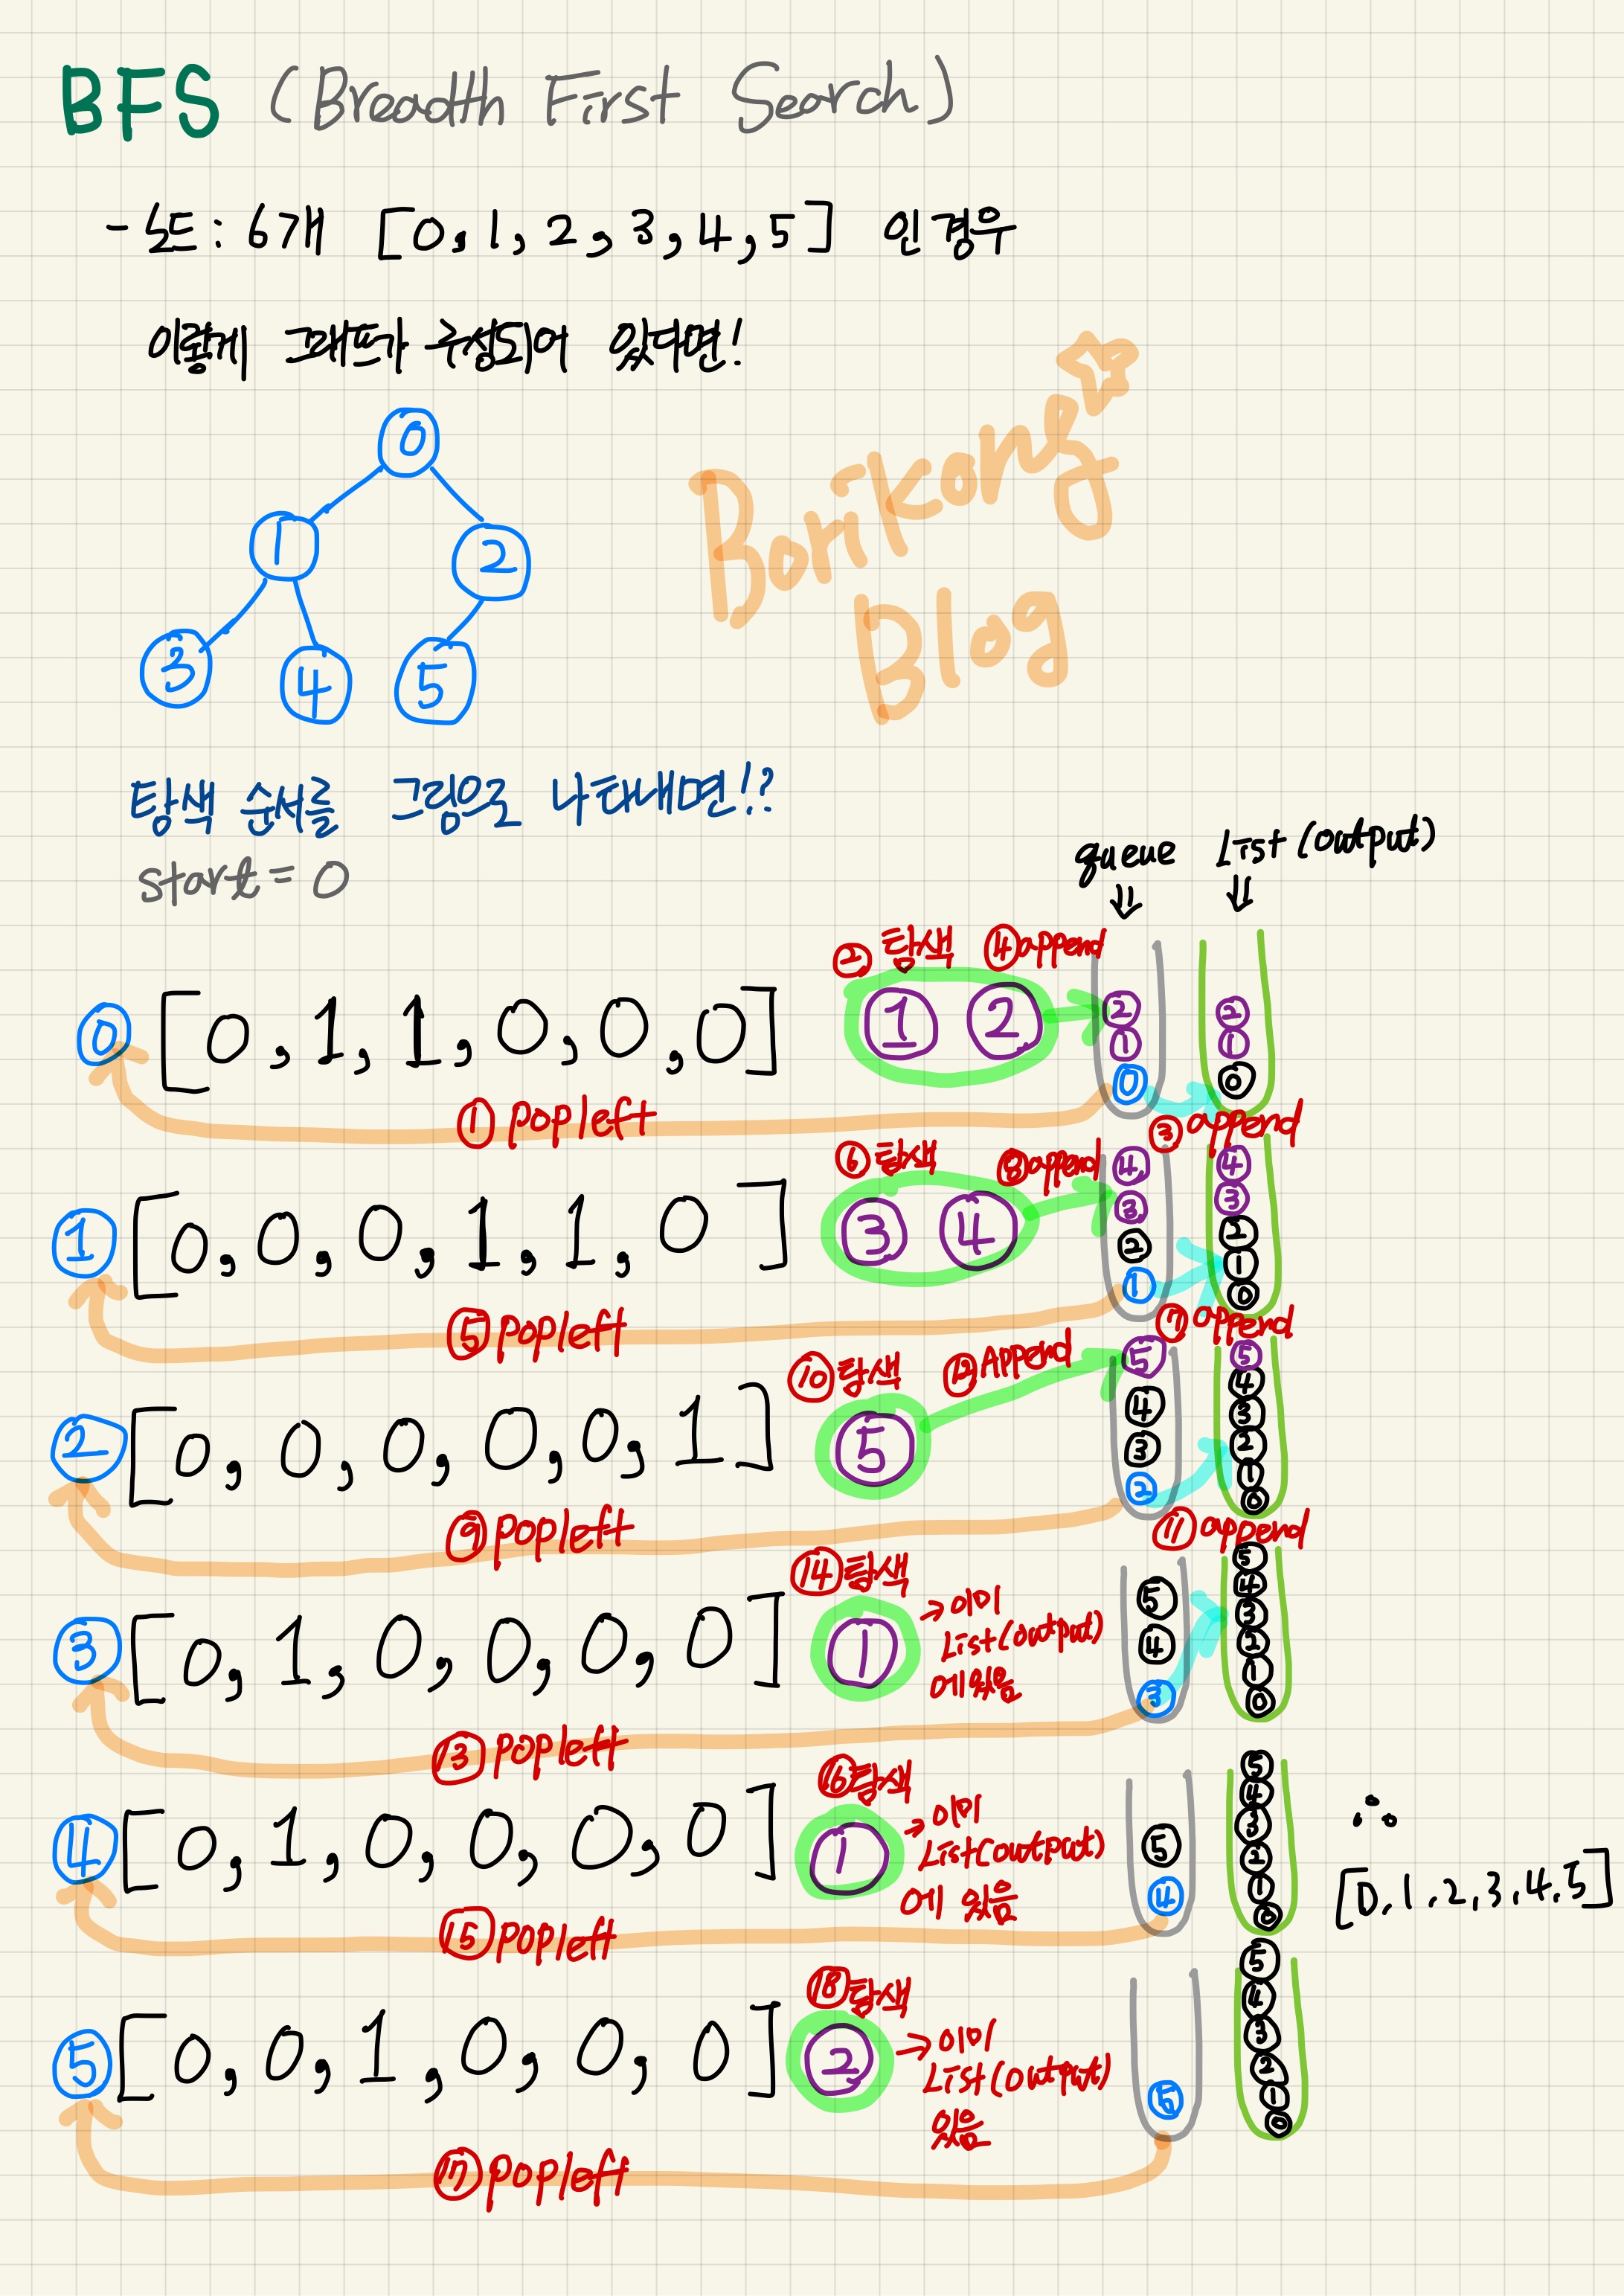 BFS (Breadth First Search)
- 노드: 6개 [0, 1, 2, 3, 4, 5] 인 경우
이렇게 그래프가 구성되어 있다면!
0
1 2
3 4 5
Borikong
Blog
탐색 순서를 그림으로 나타내면!?
start = 0
queue List (output)
② 탐색 ④ append
0 [0, 1, 1, 0, 0, 0] 1 2
2 1 0
2 1 0
① popleft ③ append
⑥ 탐색 ⑧ append
1 [0, 0, 0, 1, 1, 0] 3 4
4 3 2 1
4 3 2 1 0
⑤ popleft ⑦ append
⑩ 탐색 ⑫ Append
2 [0, 0, 0, 0, 0, 1] 5
5 4 3 2
5 4 3 2 1 0
⑨ popleft ⑪ append
⑭ 탐색
3 [0, 1, 0, 0, 0, 0] 1
→ 이미
List (output)
에 있음
5 4 3
5 4 3 2 1 0
⑬ popleft
⑯ 탐색
4 [0, 1, 0, 0, 0, 0] 1
→ 이미
List (output)
에 있음
5 4
5 4 3 2 1 0
∴
[0, 1, 2, 3, 4, 5]
⑮ popleft
⑱ 탐색
5 [0, 0, 1, 0, 0, 0] 2
→ 이미
List (output)
있음
5
5 4 3 2 1 0
⑰ popleft